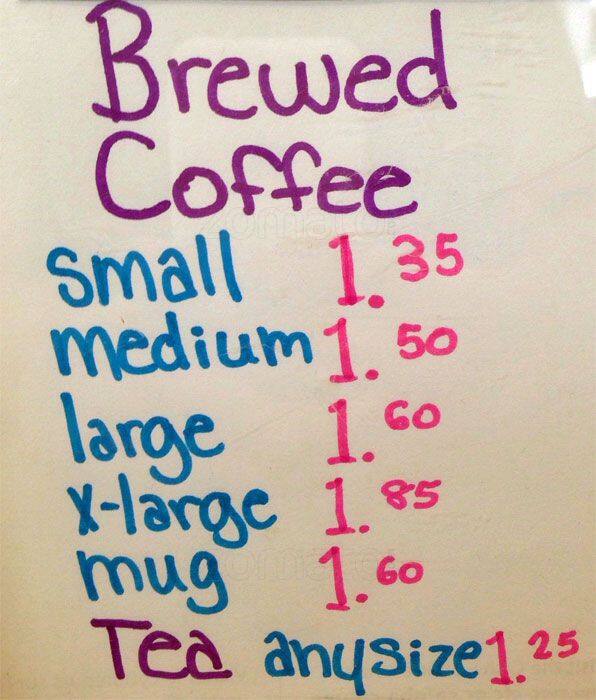 Brewed
Coffee
small 1.35
medium 1.50
large 1.60
x-large 1.85
mug 1.60
Tea anysize 1.25